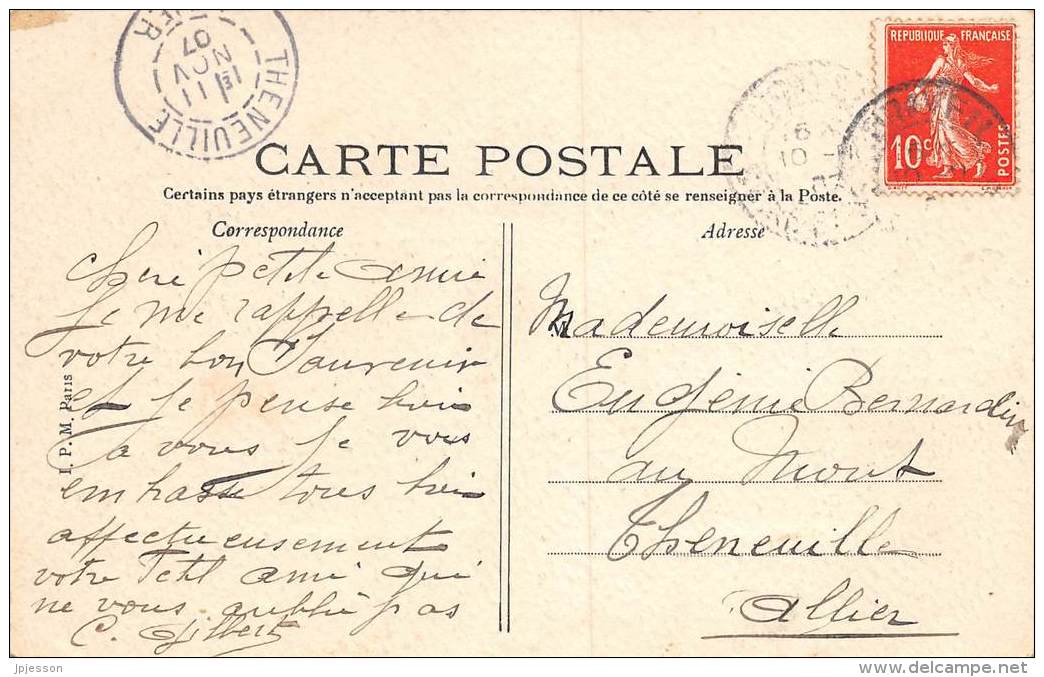 THENEUILLE
11
NOV
07
REPUBLIQUE FRANÇAISE
10c
POSTES
CARTE POSTALE
Certains pays étrangers n'acceptant pas la correspondance de ce côté se renseigner à la Poste.
Correspondance
Adresse
chere petite amie
Je me rappelle de
votre bon Souvenir
et Je pense bien
a vous Je vous
embrasse tous bien
affectueusement
votre Petit ami qui
ne vous oublie pas
C. Gilbert
I. P. M. Paris
Mademoiselle
Eugénie Bernardin
au Mont
Theneuille
Allier
jpjesson
delcampe.net